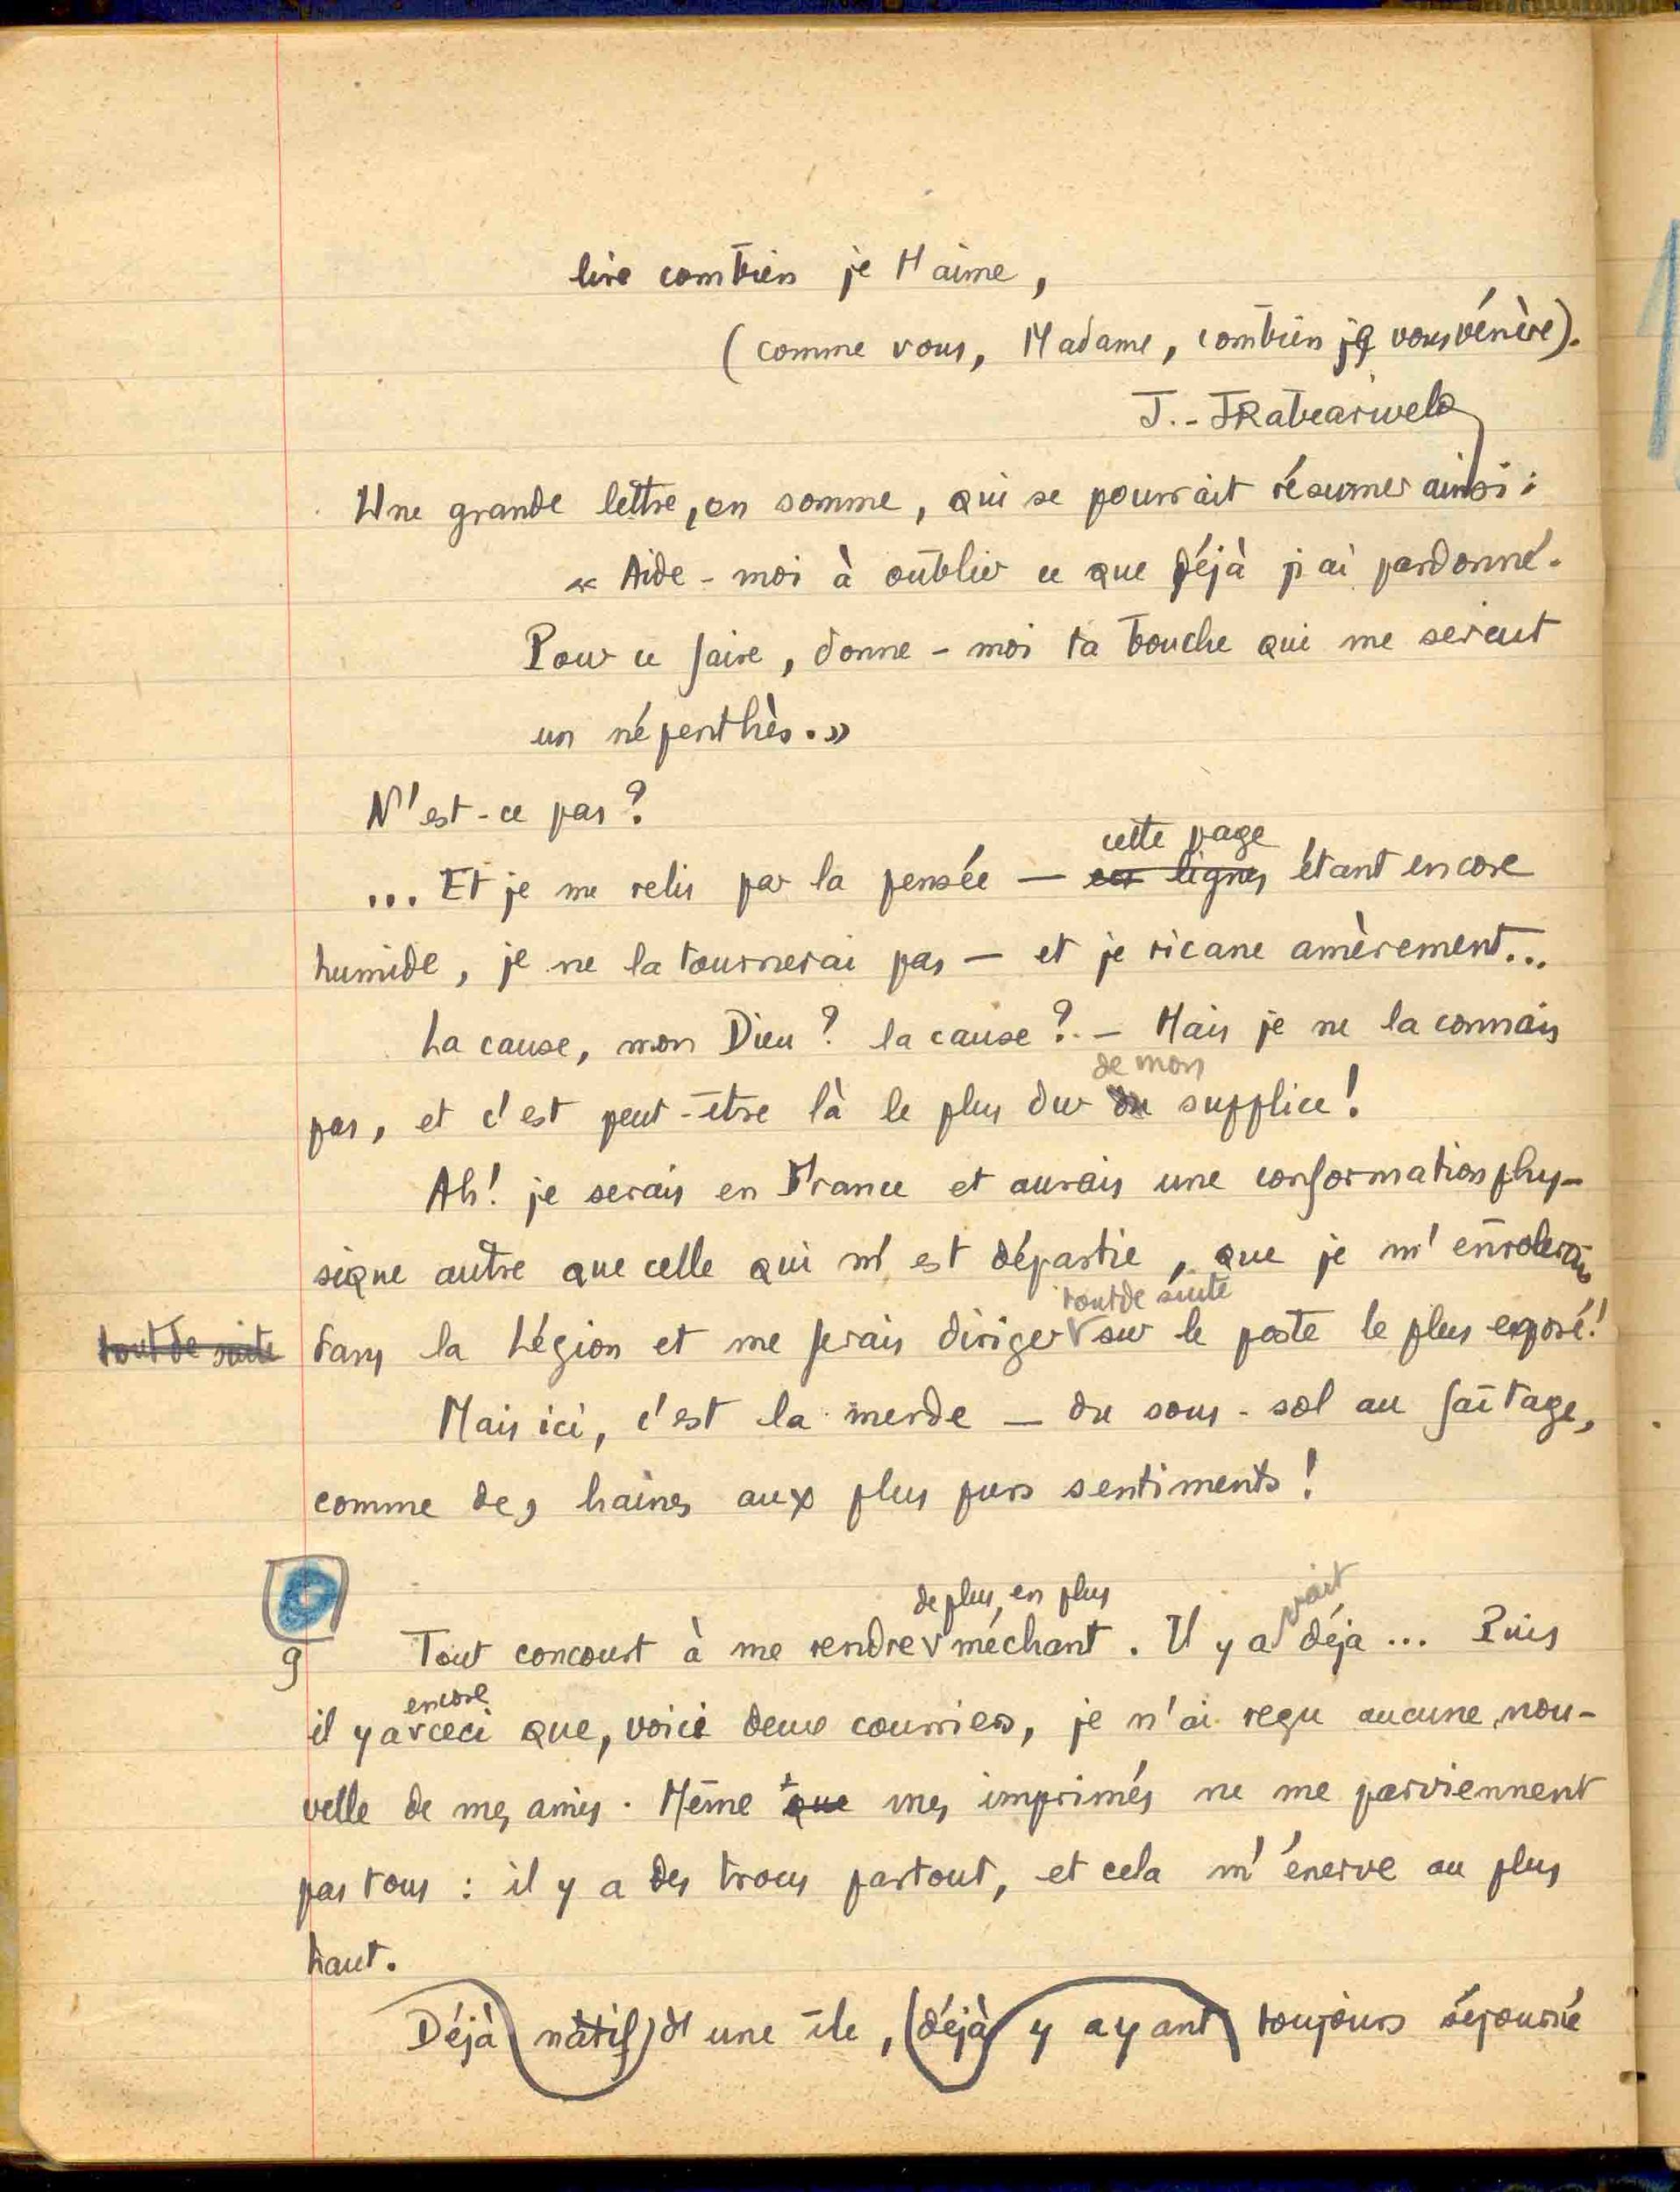 lire combien je t'aime,
(comme vous, Madame, combien je vous vénère).
J.-J Rabearivelo
Une grande lettre, en somme, qui se pourrait résumer ainsi :
« Aide-moi à oublier ce que déjà j'ai pardonné.
Pour ce faire, donne-moi ta bouche qui me serait
un népenthès. »
N'est-ce pas ?
cette page
... Et je me relis par la pensée — ces lignes étant encore
humide, je ne la tournerai pas — et je ricane amèrement...
La cause, mon Dieu ? la cause ? — Mais je ne la connais
de mon
pas, et c'est peut-être là le plus dur du supplice !
Ah ! je serais en France et aurais une conformation phy-
sique autre que celle qui m'est départie, que je m'enrolerais
tout de suite
tout de suite dans la Légion et me ferais diriger sur le poste le plus exposé !
Mais ici, c'est la merde — du sous-sol au faîtage,
comme des haines aux plus purs sentiments !
de plus en plus vait
9 Tout concourt à me rendre méchant. Il y a déjà ... Puis
encore
il y a ceci que, voici deux courriers, je n'ai reçu aucune nou-
velle de mes amis. Même que mes imprimés ne me parviennent
pas tous : il y a des trous partout, et cela m'énerve au plus
haut.
Déjà natif d'une île, déjà y ayant toujours séjourné